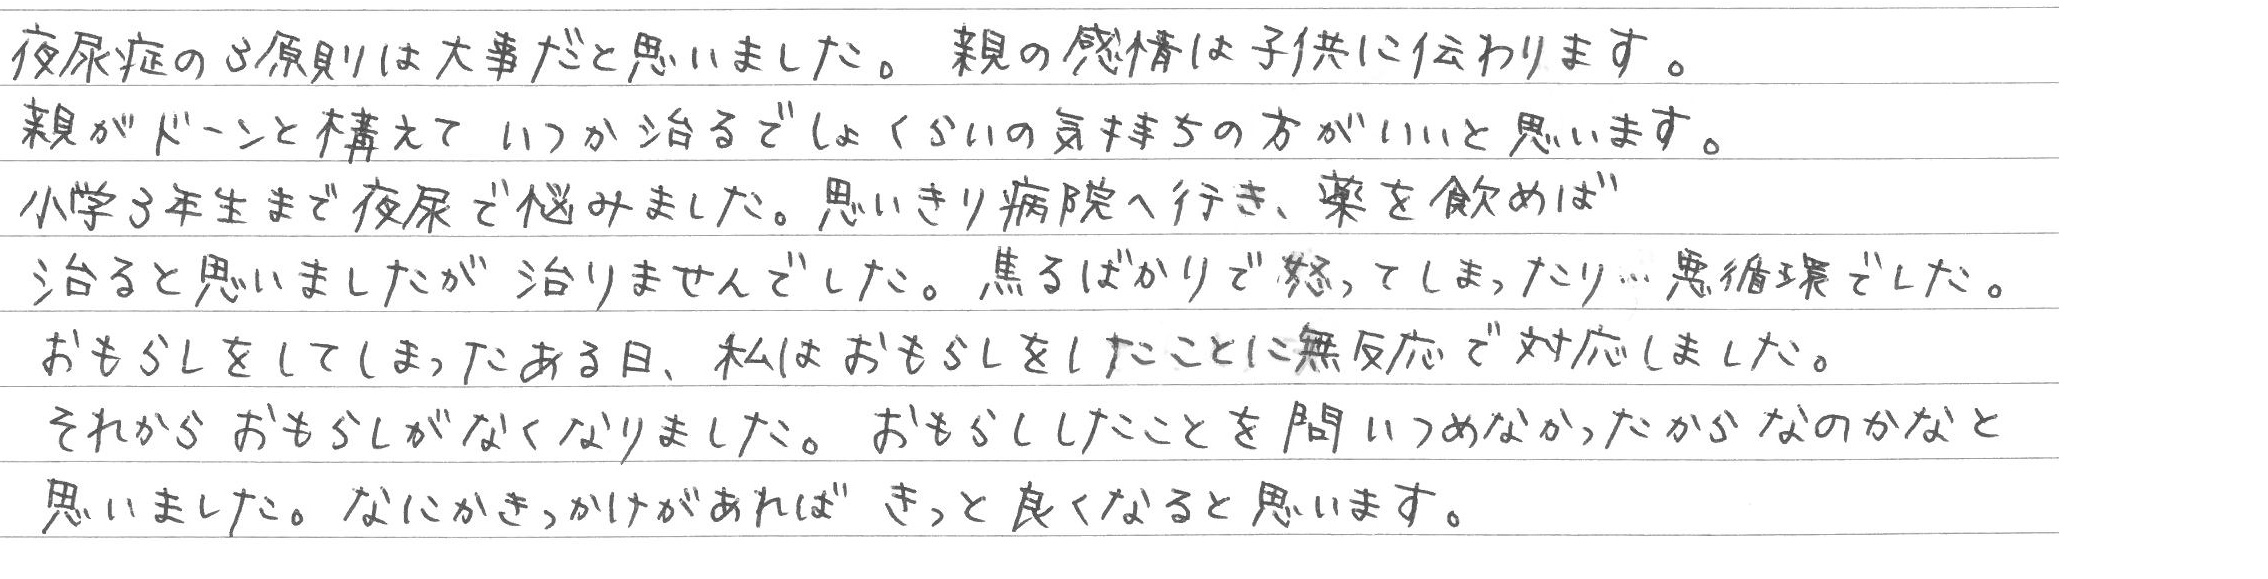 夜尿症の3原則は大事だと思いました。 親の感情は子供に伝わります。
親がドーンと構えて いつか治るでしょくらいの気持ちの方がいいと思います。
小学3年生まで夜尿で悩みました。思いきり病院へ行き、薬を飲めば
治ると思いましたが治りませんでした。焦るばかりで怒ってしまったり…悪循環でした。
おもらしをしてしまったある日、私はおもらしをしたことに無反応で対応しました。
それからおもらしがなくなりました。おもらししたことを問いつめなかったからなのかなと
思いました。なにかきっかけがあればきっと良くなると思います。